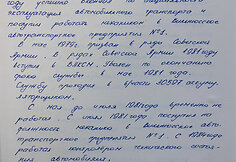 году успешно окончил по специальности
эксплуатация автомобильного транспорта и
поступил работать механиком в Вилюнское
автотранспортное предприятие №1.
В мае 1979г. призван в ряды Советской
Армии. В рядах Советской Армии 1979 году
вступил в ВЛКСМ. Уволен по окончанию
срока службы в мае 1981 года.
Службу проходил в части
С мая до июля 1981 года временно не
работал. С июля 1981 года поступил на
должность механика в авто-
транспортное предприятие №1. С 1984 года
работал контролером технического состоя-
ния автомобилей.